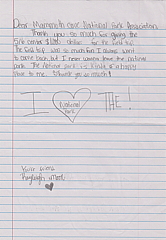 Dear Mammoth Cave National Park Association,
Thank you so much for giving the
5th grade $1,000 dollars for the field trip.
The field trip was so much fun I always want
to come back, but I never wanna leave the national
park. The national park is kinda of a lovely
place to me. Thank you so much!
I National Park THE!
Your friend
Kayleigh